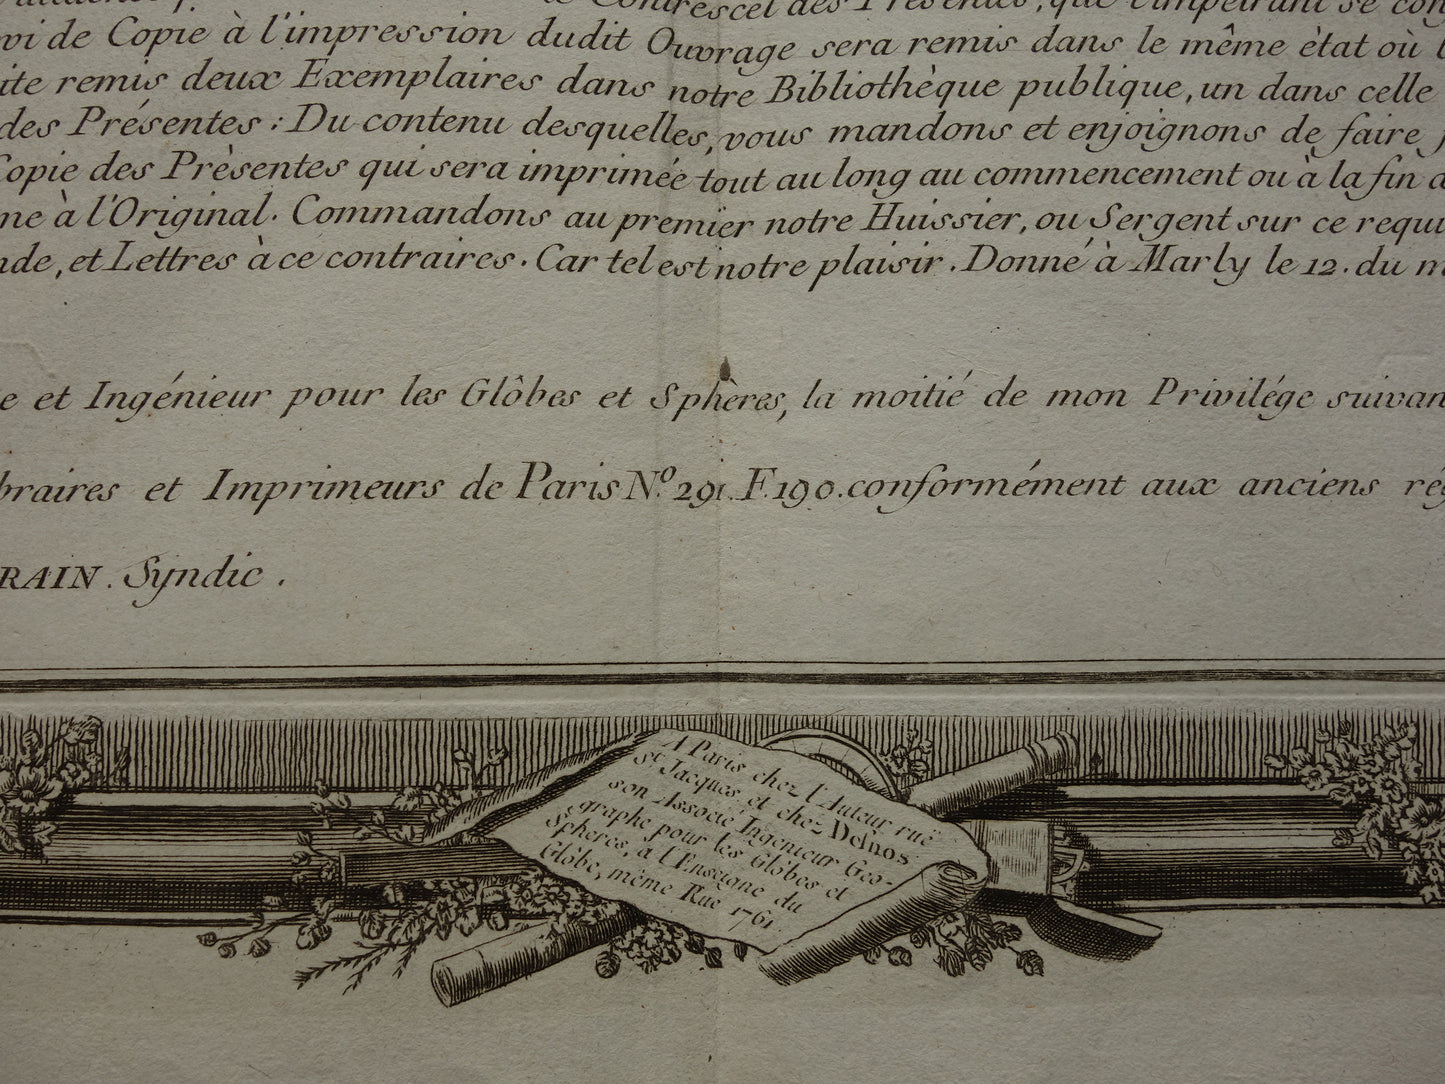 Contrescel des Présentes, que l'impétrant se
de Copie à l'impression dudit Ouvrage sera remis dans le même ètat où
remis deux Exemplaires dans notre Bibliothèque publique, un dans celle
des Présentes : Du contenu desquelles, vous mandons et enjoignons de faire
Copie des Prèsentes qui sera imprimée tout au long au commencement ou à la fin
à l'Original. Commandons au premier notre Huissier, ou Sergent sur ce
et Lettres à ce contraires. Car tel est notre plaisir. Donné à Marly le 12. du
et Ingénieur pour les Glôbes et Sphères, la moitié de mon Privilége
et Imprimeurs de Paris N.º 291. F. 190. conformément aux anciens
RAIN. Syndic.
A Paris chez l'Auteur ruë
St Jacques et chez Delnos
son Associé Ingenieur Geo-
graphe pour les Glôbes et
Spheres, a l'Enseigne du
Glôbe, même Rue 1761